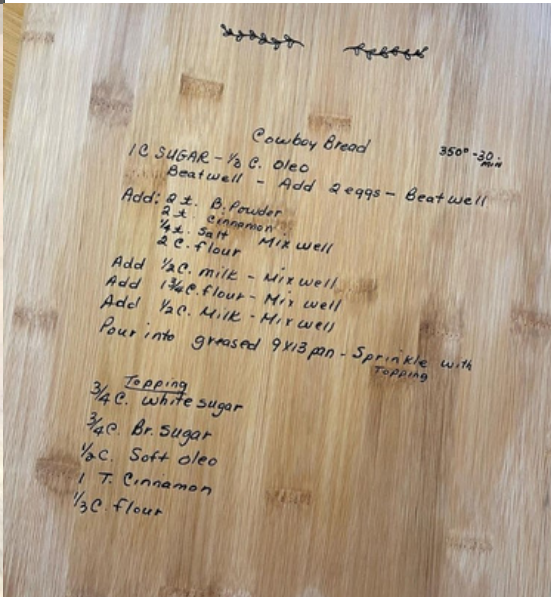 Cowboy Bread
350° - 30 min
1 C SUGAR - 1/3 C. Oleo
Beat well - Add 2 eggs - Beat well
Add: 2 t. B. Powder
2 t. Cinnamon
1/4 t. Salt Mix well
2 C. flour
Add 1/2 C. milk - Mix well
Add 1 3/4 C. flour - Mix well
Add 1/2 C. Milk - Mix well
Pour into greased 9x13 pan - Sprinkle with
Topping
Topping
3/4 C. white sugar
3/4 C. Br. Sugar
1/2 C. Soft Oleo
1 T. Cinnamon
1/3 C. flour